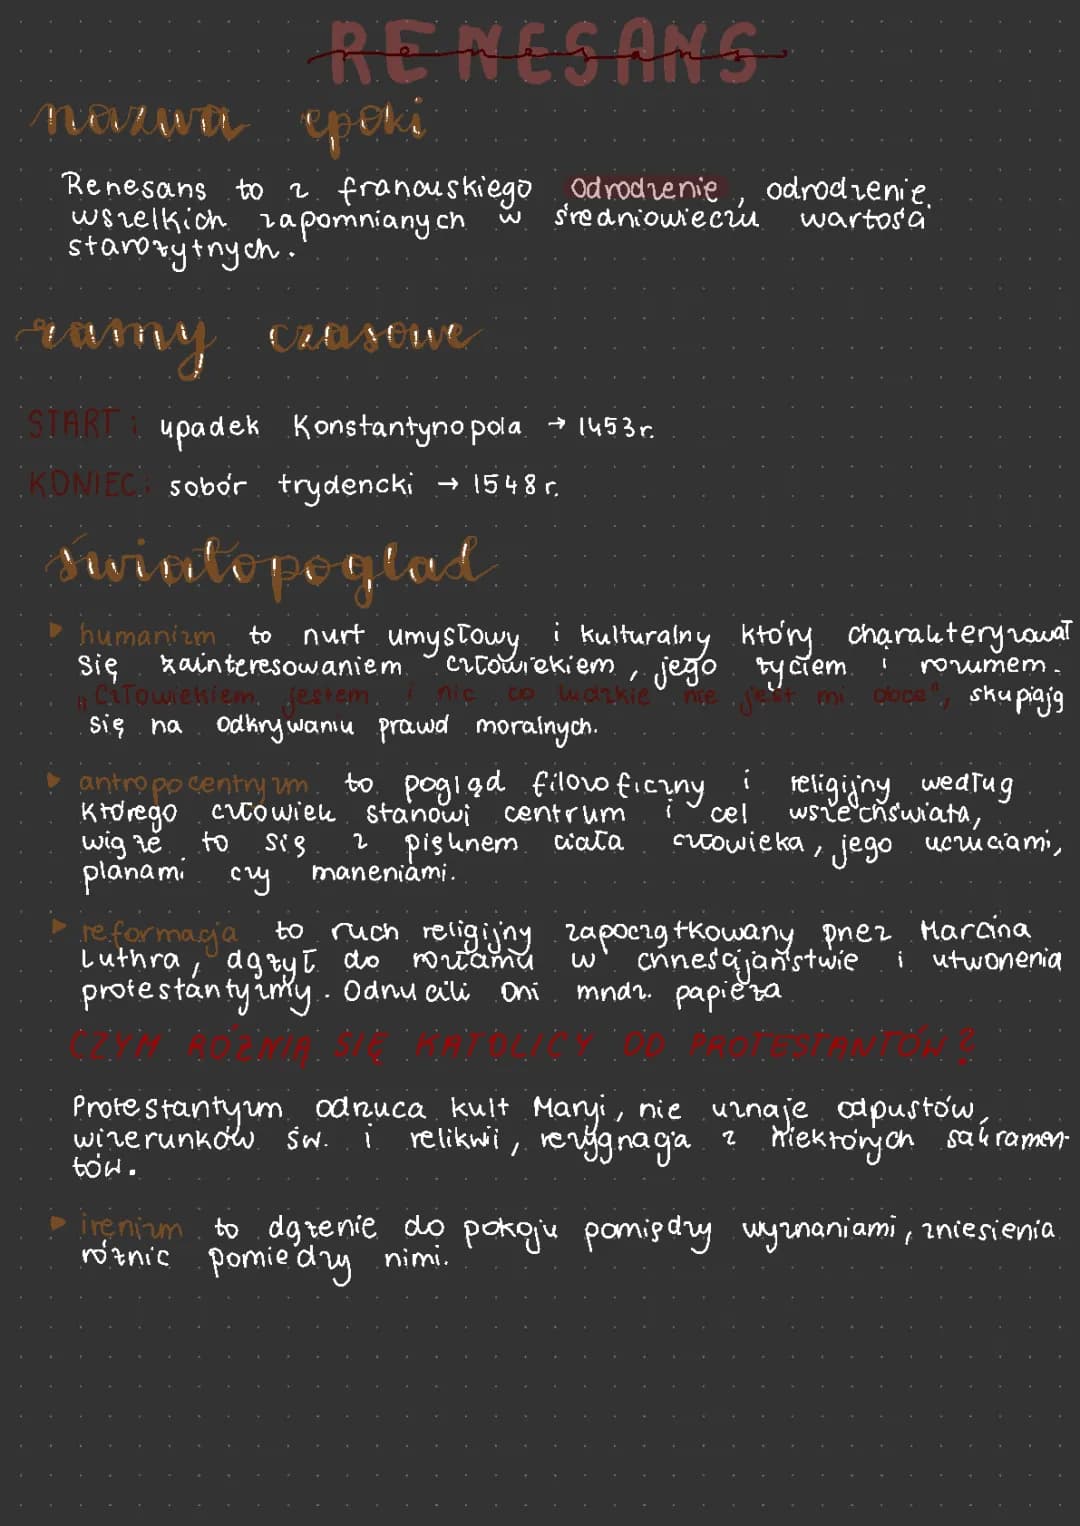 RENESANS
renesans
nazwa epoki
Renesans to z francuskiego Odrodzenie, odrodzenie
wszelkich zapomnianych w średniowieczu wartości
starożytnych.
ramy czasowe
START: upadek Konstantynopola → 1453r.
KONIEC: sobór trydencki → 1548r.
światopogląd
▸ humanizm to nurt umysłowy i kulturalny który charakteryzował
się zainteresowaniem człowiekiem, jego życiem i rozumem.
„Człowiekiem jestem i nic co ludzkie nie jest mi obce", skupiają
się na odkrywaniu prawd moralnych.
▸ antropocentryzm to pogląd filozoficzny i religijny według
którego człowiek stanowi centrum i cel wszechświata,
wiąże to się z pięknem ciała człowieka, jego uczuciami,
planami czy marzeniami.
▸ reformacja to ruch religijny zapoczątkowany przez Marcina
Luthra, dążył do rozłamu w chrześcijaństwie i utworzenia
protestantyzmu. Odrzucili oni zwierz. papieża
CZYM RÓŻNIĄ SIĘ KATOLICY OD PROTESTANTÓW?
Protestantyzm odrzuca kult Maryi, nie uznaje odpustów,
wizerunków św. i relikwii, rezygnacja z niektórych sakramen-
tów.
▸ irenizm to dążenie do pokoju pomiędzy wyznaniami, zniesienia
różnic pomiedzy nimi.